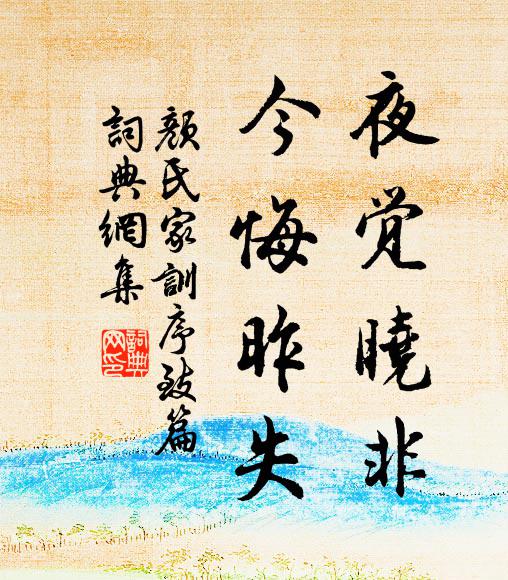 夜觉曉非
今悔昨失
顏氏家訓序致篇
詞典網集
詞典网印